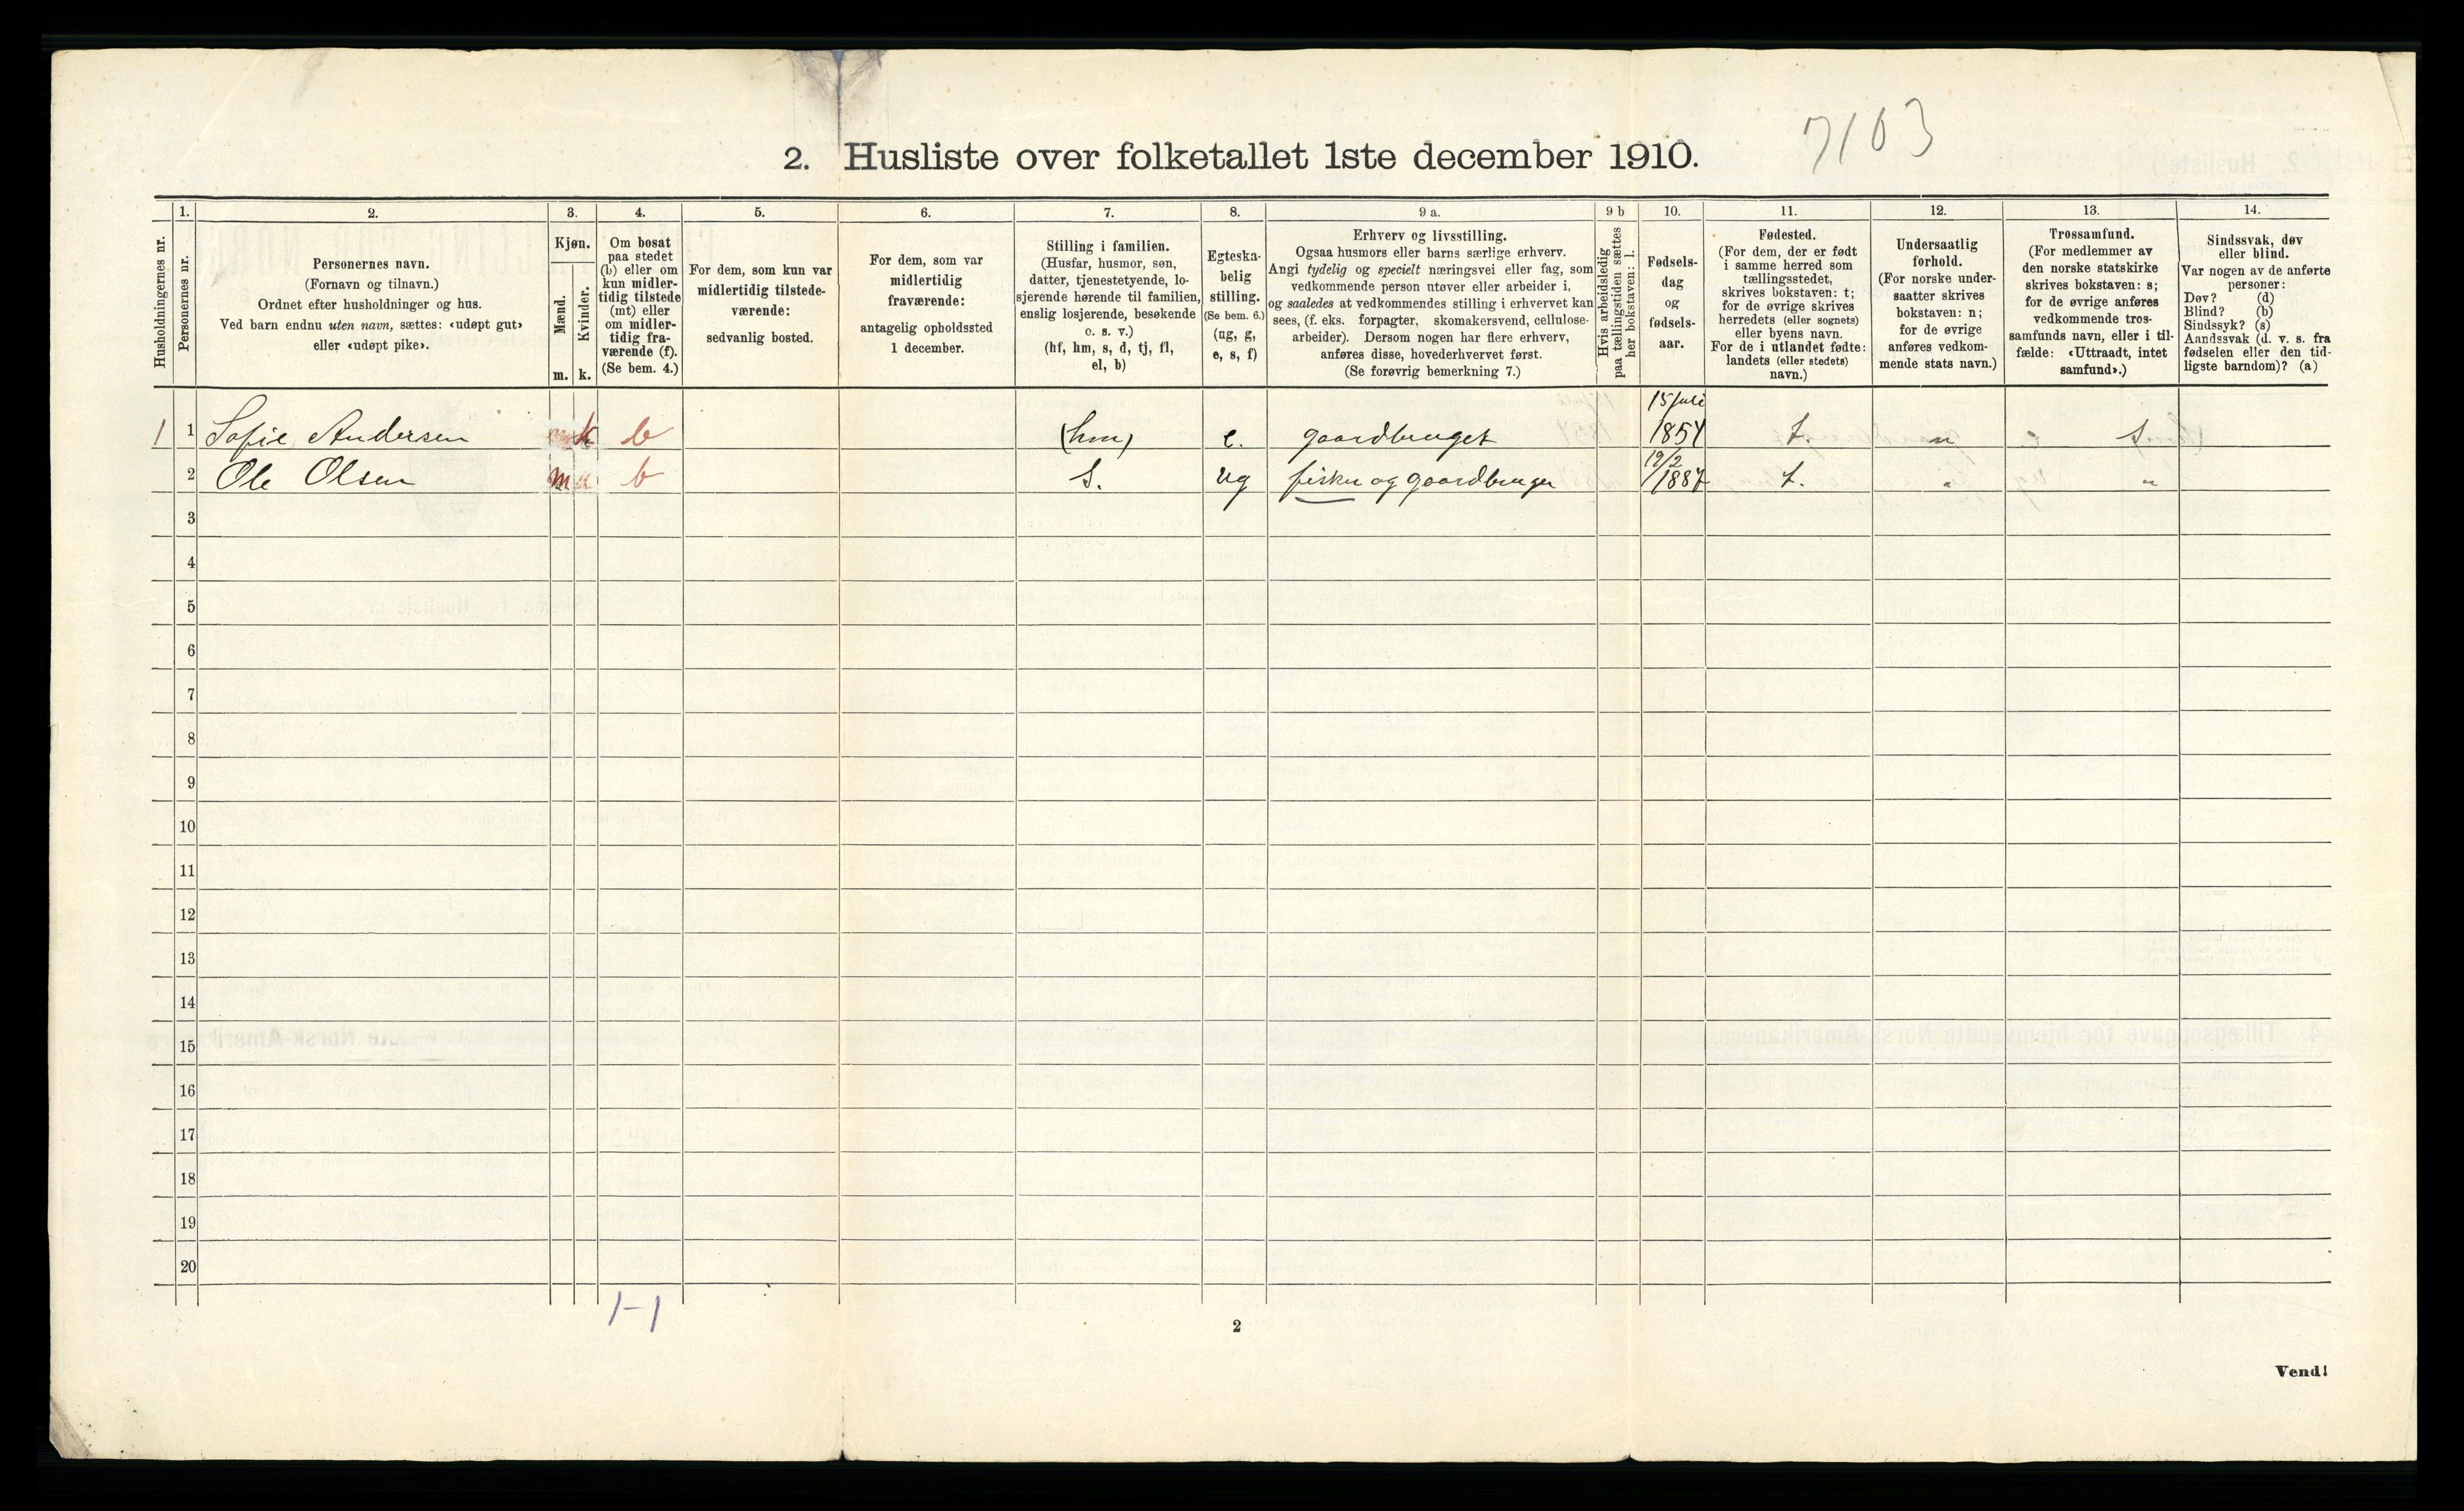 2. Husliste over folketallet 1ste december 1910.
7103
Husholdningernes nr.
1.
Personernes nr.
2.
Personernes navn.
(Fornavn og tilnavn.)
Ordnet efter husholdninger og hus.
Ved barn endnu uten navn, sættes: «udøpt gut»
eller «udøpt pike».
3.
Kjøn.
Mænd.
Kvinder.
m. k.
4.
Om bosat
paa stedet
(b) eller om
kun midler-
tidig tilstede
(mt) eller
om midler-
tidig fra-
værende (f).
(Se bem. 4.)
5.
For dem, som kun var
midlertidig tilstede-
værende:
sedvanlig bosted.
6.
For dem, som var
midlertidig
fraværende:
antagelig opholdssted
1 december.
7.
Stilling i familien.
(Husfar, husmor, søn,
datter, tjenestetyende, lo-
sjerende hørende til familien,
enslig losjerende, besøkende
o. s. v.)
(hf, hm, s, d, tj, fl,
el, b)
8.
Egteska-
belig
stilling.
(Se bem. 6.)
(ug, g,
e, s, f)
9 a.
Erhverv og livsstilling.
Ogsaa husmors eller barns særlige erhverv.
Angi tydelig og specielt næringsvei eller fag, som
vedkommende person utøver eller arbeider i,
og saaledes at vedkommendes stilling i erhvervet kan
sees, (f. eks. forpagter, skomakersvend, cellulose-
arbeider). Dersom nogen har flere erhverv,
anføres disse, hovederhvervet først.
(Se forøvrig bemerkning 7.)
9 b
Hvis arbeidsledig
paa tællingstiden sættes
her bokstaven: l.
10.
Fødsels-
dag
og
fødsels-
aar.
11.
Fødested.
(For dem, der er født
i samme herred som
tællingsstedet,
skrives bokstaven: t;
for de øvrige skrives
herredets (eller sognets)
eller byens navn.
For de i utlandet fødte:
landets (eller stedets)
navn.)
12.
Undersaatlig
forhold.
(For norske under-
saatter skrives
bokstaven: n;
for de øvrige
anføres vedkom-
mende stats navn.)
13.
Trossamfund.
(For medlemmer av
den norske statskirke
skrives bokstaven: s;
for de øvrige anføres
vedkommende tros-
samfunds navn, eller i til-
fælde: «Uttraadt, intet
samfund».)
14.
Sindssvak, døv
eller blind.
Var nogen av de anførte
personer:
Døv? (d)
Blind? (b)
Sindssyk? (s)
Aandssvak (d. v. s. fra
fødselen eller den tid-
ligste barndom)? (a)
1 1 Sofie Andersen k b (hm) e. gaardbruget 15 juli 1854 t. n s
2 Ole Olsen m b s. ug fisker og gaardbruger 19/2 1887 t. " "
3
4
5
6
7
8
9
10
11
12
13
14
15
16
17
18
19
20
1-1
2
Vend!